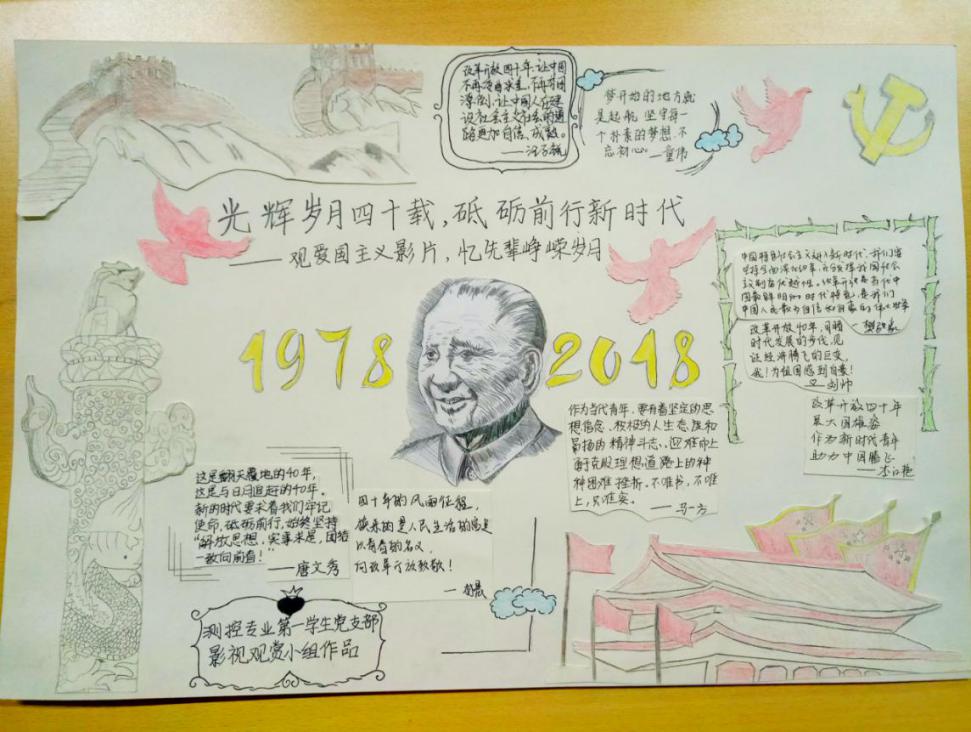 改革开放四十年，让中国
让中国人在建
设社会主义社会的道
路更加自信、成熟。
梦开始的地方就
是起航，坚守每一
个朴素的梦想，不
忘初心。——童伟
光辉岁月四十载，砥砺前行新时代
——观爱国主义影片，忆先辈峥嵘岁月
1978 2018
中国特色社会主义进入新时代，我们要
中国最鲜明的时代特色，是我们
改革开放40年，目睹
时代发展的步伐，见
证经济腾飞的巨变，
我！为祖国感到自豪！
——刘帅
改革开放四十年
泱大国雄姿
作为新时代青年
助力中国腾飞
作为当代青年，要有着坚定的思
想信念、积极的人生态度和
昂扬的精神斗志，迎难而上
勇克服理想道路上的种
种困难挫折。不唯书，不唯
上，只唯实。
——马一方
这是翻天覆地的40年，
这是与日月追赶的40年。
新的时代要求着我们牢记
使命，砥砺前行，始终坚持
“解放思想，实事求是，团结
一致向前看！”
——唐文秀
四十年的风雨征程，
换来的是人民生活的
向改革开放致敬！
测控专业第一学生党支部
影视观赏小组作品